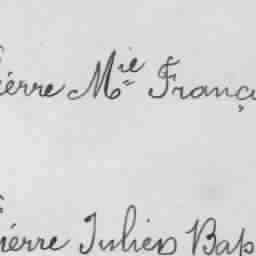 ierre Mie Franç
ierre Julien Bap